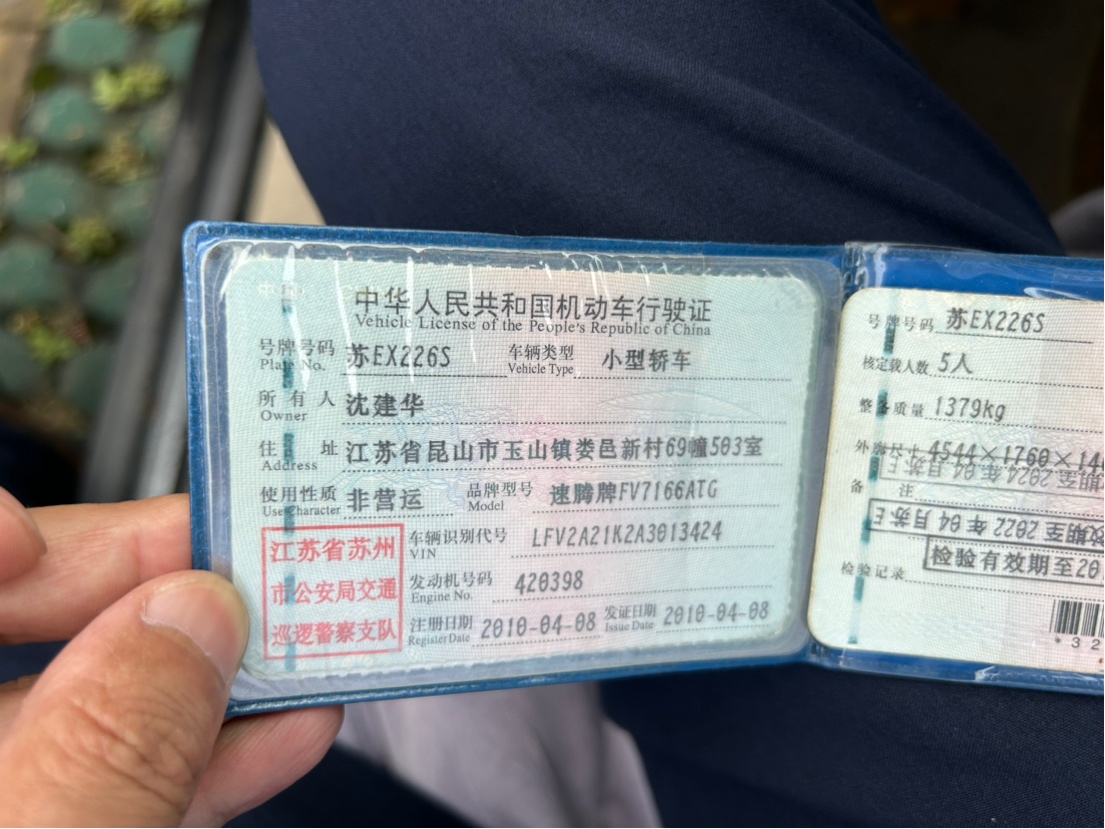 中华人民共和国机动车行驶证
Vehicle License of the People's Republic of China
号牌号码 苏EX226S 车辆类型 小型轿车
Plate No. Vehicle Type
所有人 沈建华
Owner
住址 江苏省昆山市玉山镇娄邑新村69幢503室
Address
使用性质 非营运 品牌型号 速腾牌FV7166ATG
Use Character Model
江苏省苏州
市公安局交通
巡逻警察支队
车辆识别代号 LFV2A21K2A3013424
VIN
发动机号码 420398
Engine No.
注册日期 2010-04-08 发证日期 2010-04-08
Register Date Issue Date
号牌号码 苏EX226S
核定载人数 5人
整备质量 1379kg
外廓尺寸 4544×1760×146
备注
效期至 2022年04月苏E
检验有效期至20
检验记录
*32